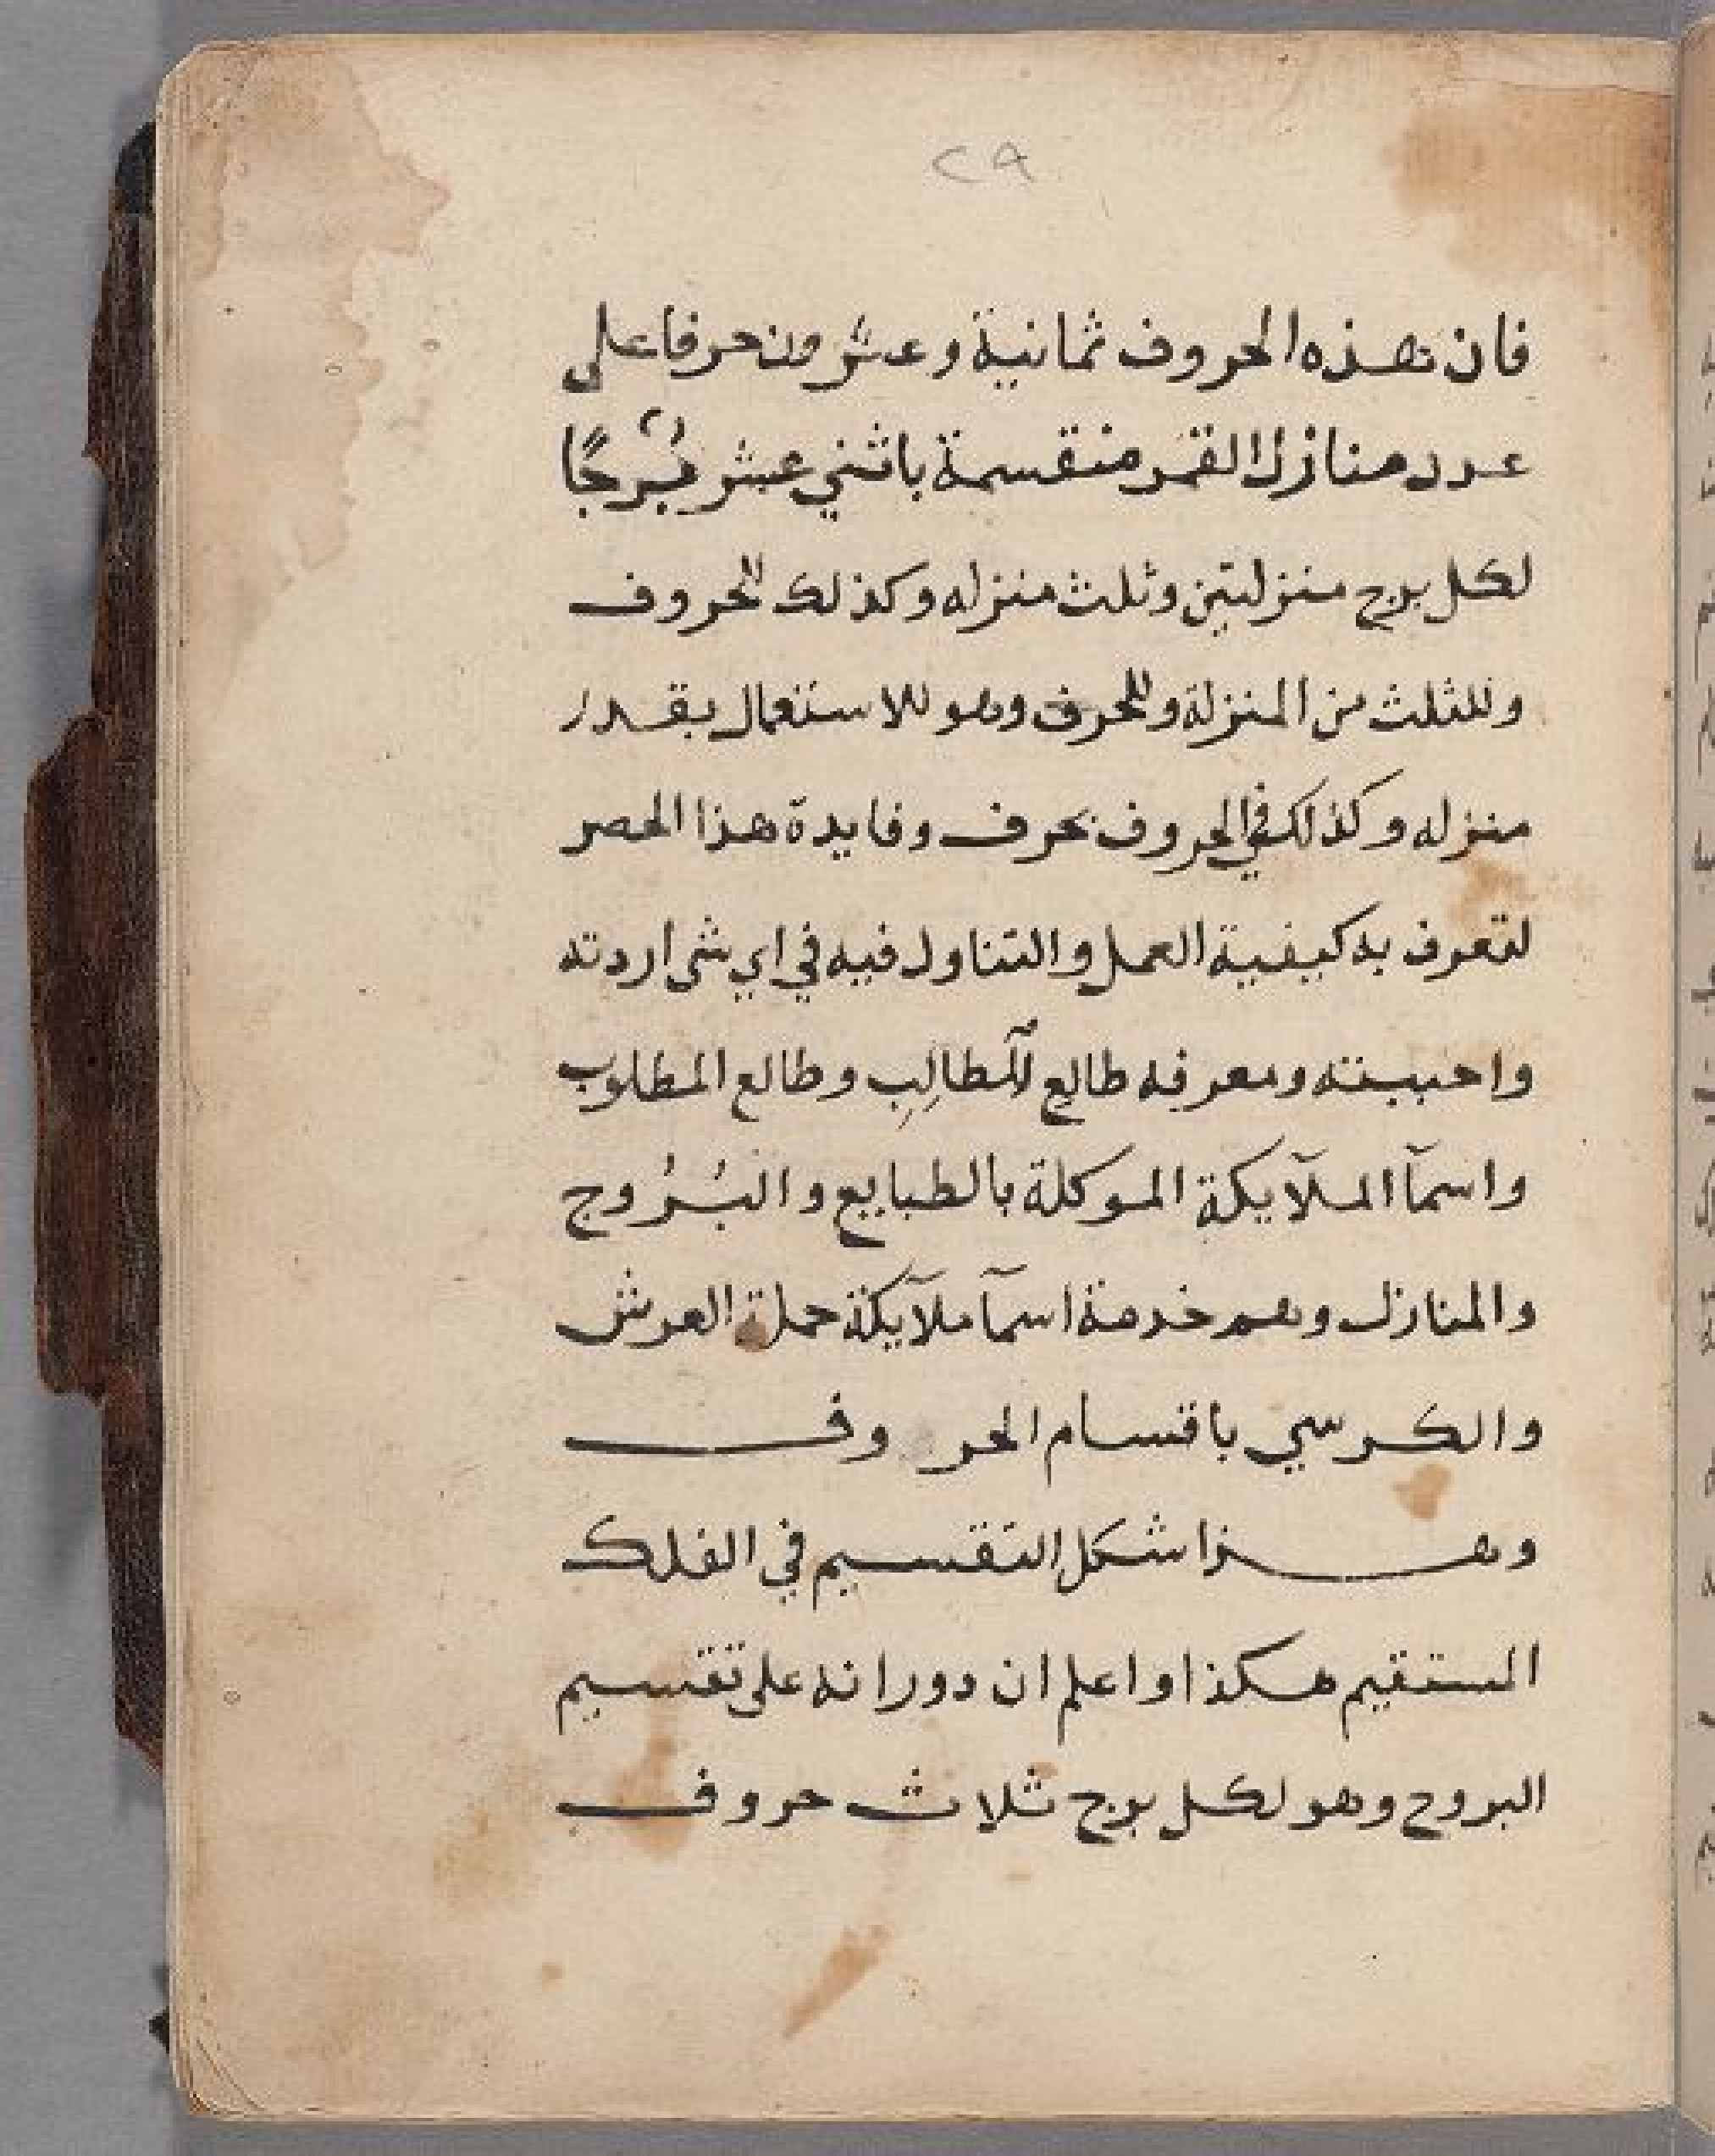 ٢٩
فان هذه الحروف ثمانية وعشرون حرفا على
عدد منازل القمر منقسمة باثني عشر بُرجًا
لكل برج منزلتين وثلث منزله وكذلك الحروف
وللثلث من المنزلة وللحرف وهو للاستعمال بقدر
منزله وكذلك في الحروف بحرف وفايدة هذا الحصر
لتعرف به كيفية العمل والتناول فيه في اي شى اردته
واحببته ومعرفه طالع للطالِب وطالع المطلوب
واسمآ الملآيكة الموكلة بالطبايع والبُرُوج
والمنازل وهم خدمة اسمآ ملآيكة حملة العرش
والكرسي باقسام الحروف
وهذا شكل التقسيم في الفلك
المستقيم هكذا واعلم ان دورانه على تقسيم
البروج وهو لكل برج ثلاث حروف